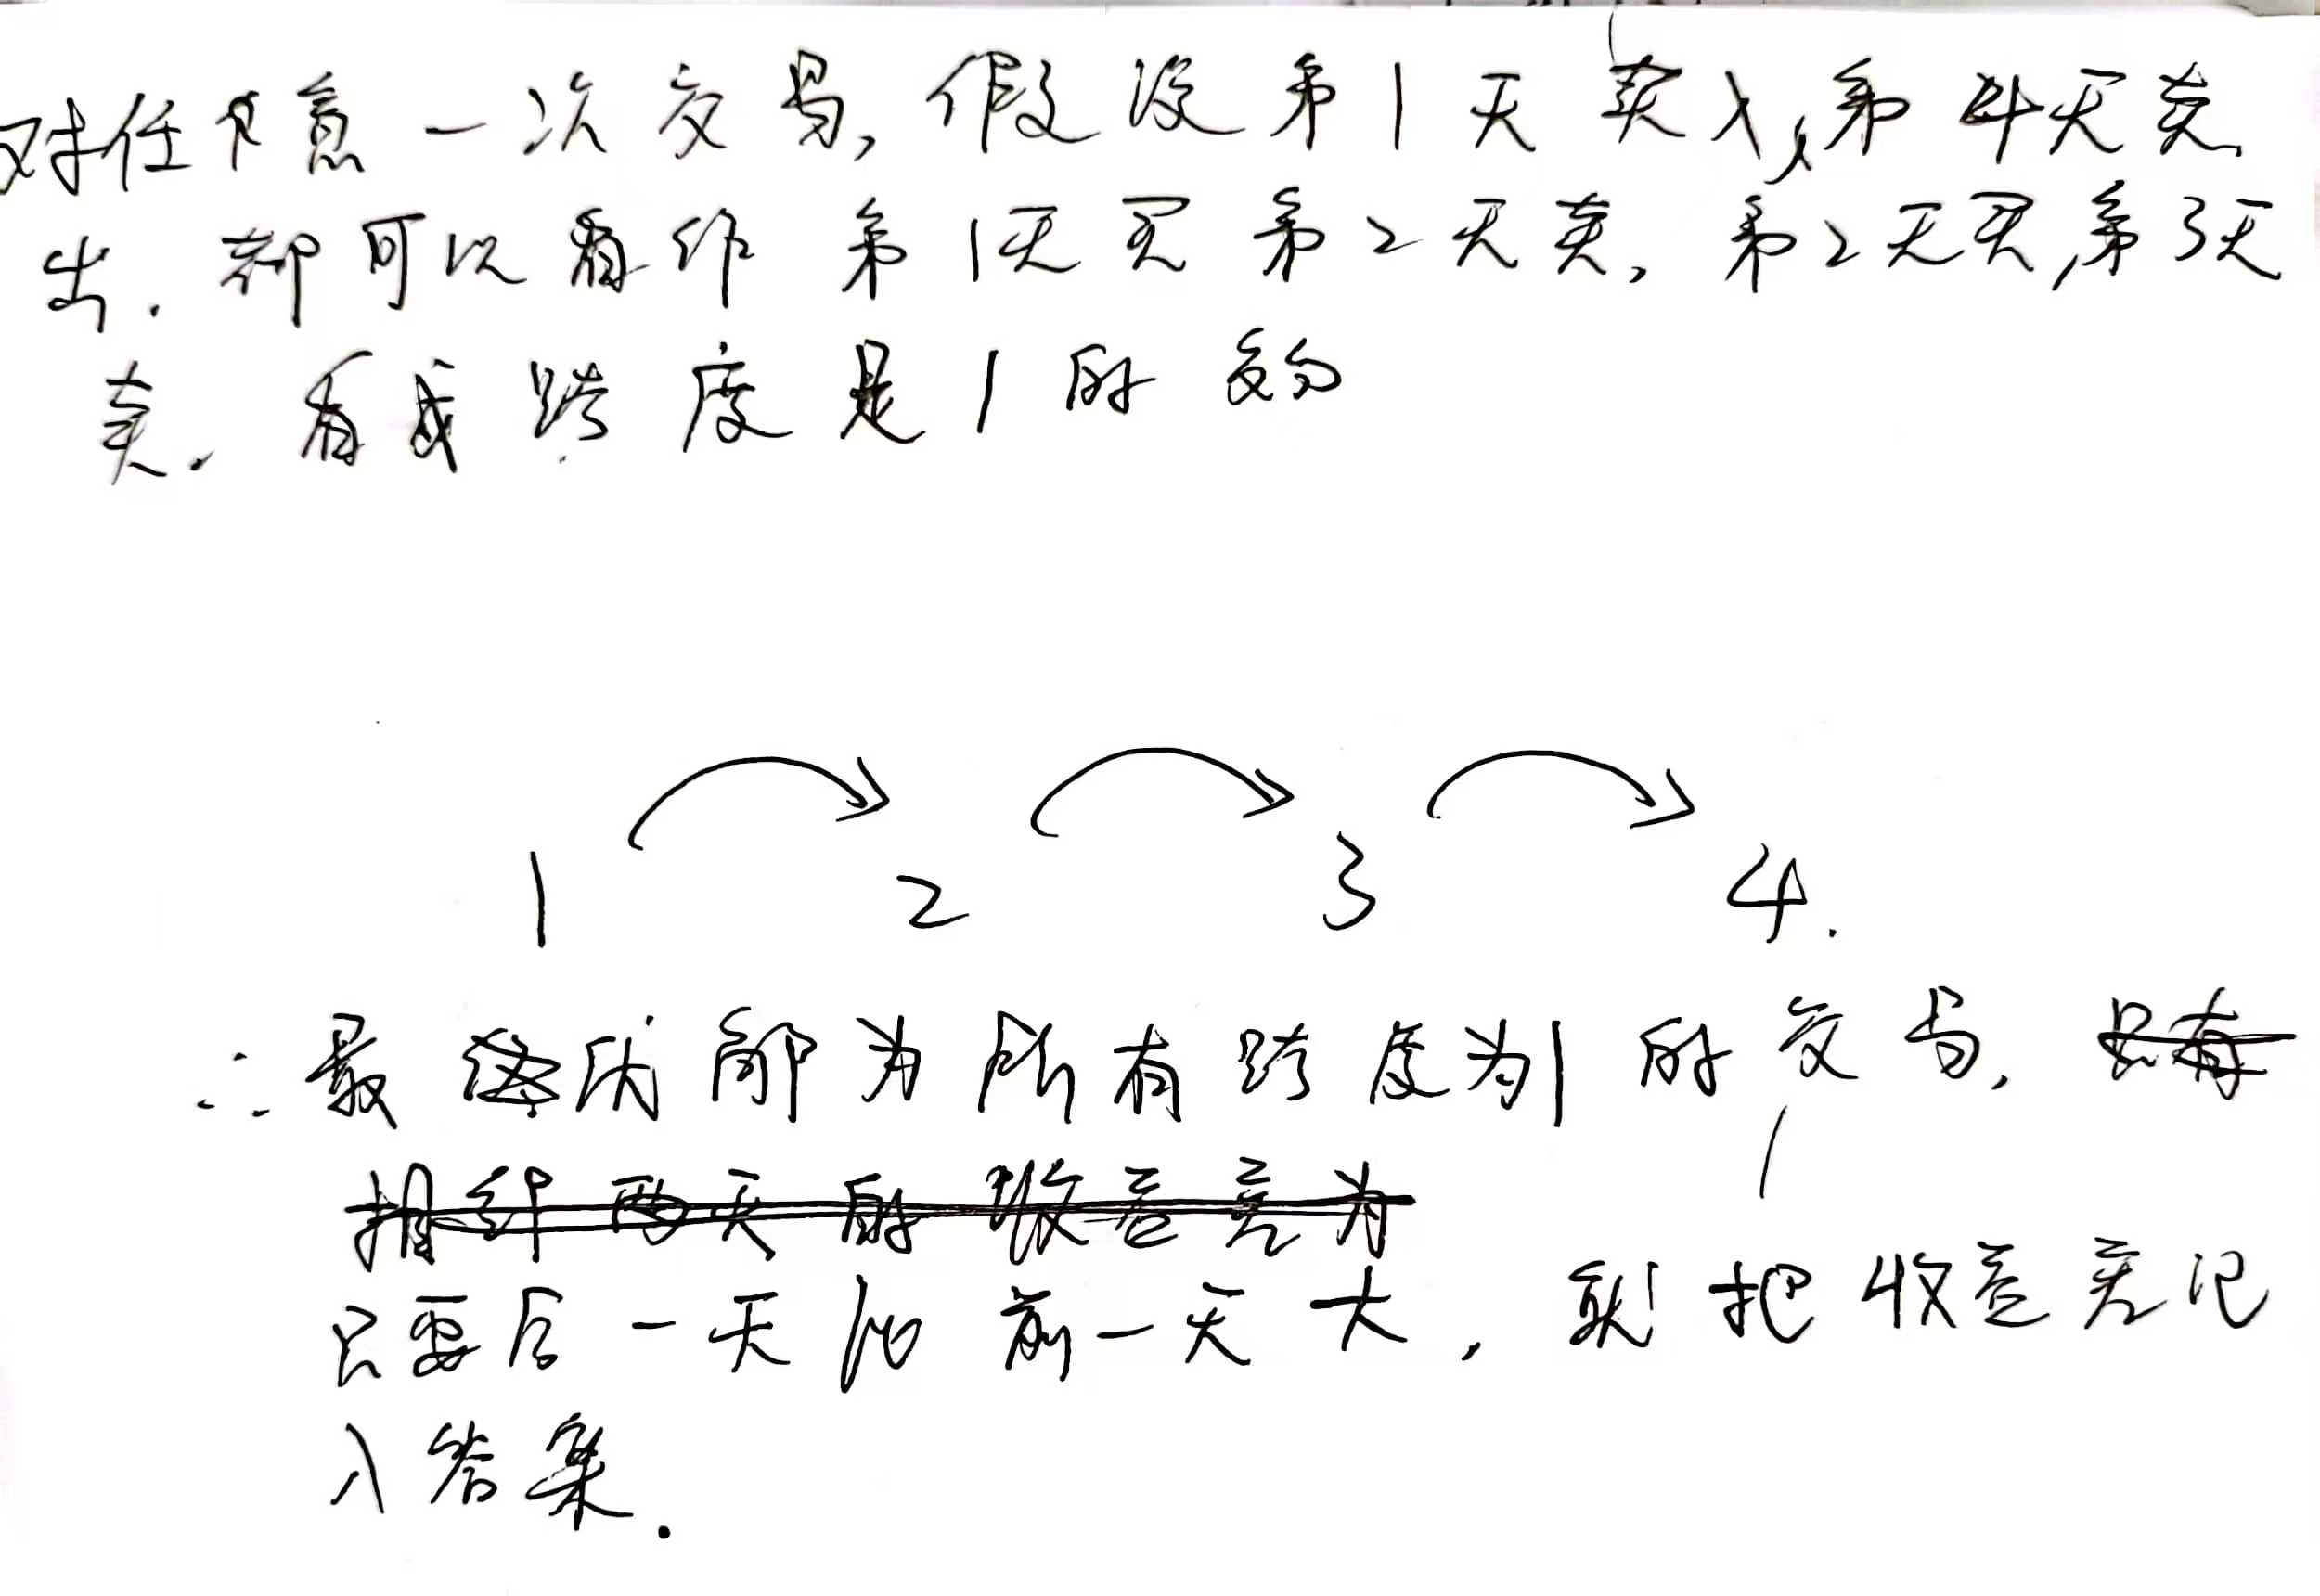 对任意一次交易, 假设第1天买入, 第4天卖
出. 都可以看作 第1天买 第2天卖, 第2天买, 第3天
卖. 看成跨度是1的交易
1 2 3 4.
∴最优解为所有跨度为1的交易,
只要后一天比前一天大, 就把收益差记
入答案.